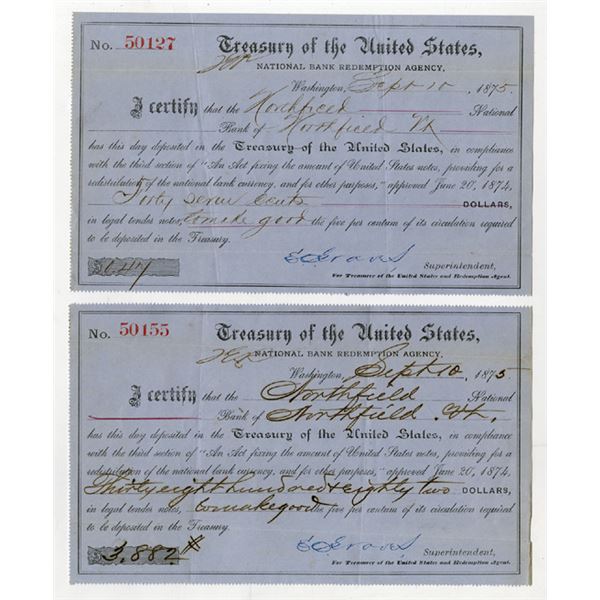 No. 50127 Treasury of the United States,
NATIONAL BANK REDEMPTION AGENCY.
Washington, Sept 10, 1875.
I certify that the Northfield National
Bank of Northfield Vt
has this day deposited in the Treasury of the United States, in compliance
with the third section of "An Act fixing the amount of United States notes, providing for a
redistribution of the national bank currency, and for other purposes," approved June 20, 1874,
Forty seven cents DOLLARS,
in legal tender notes, to make good the five per centum of its circulation required
to be deposited in the Treasury.
$0.47
Superintendent,
For Treasurer of the United States and Redemption Agent.
No. 50155 Treasury of the United States,
NATIONAL BANK REDEMPTION AGENCY.
Washington, Sept 10, 1875.
I certify that the Northfield National
Bank of Northfield Vt.
has this day deposited in the Treasury of the United States, in compliance
with the third section of "An Act fixing the amount of United States notes, providing for a
redistribution of the national bank currency, and for other purposes," approved June 20, 1874,
Thirty eight hundred & eighty two DOLLARS,
in legal tender notes, to make good the five per centum of its circulation required
to be deposited in the Treasury.
3,882
Superintendent,
For Treasurer of the United States and Redemption Agent.